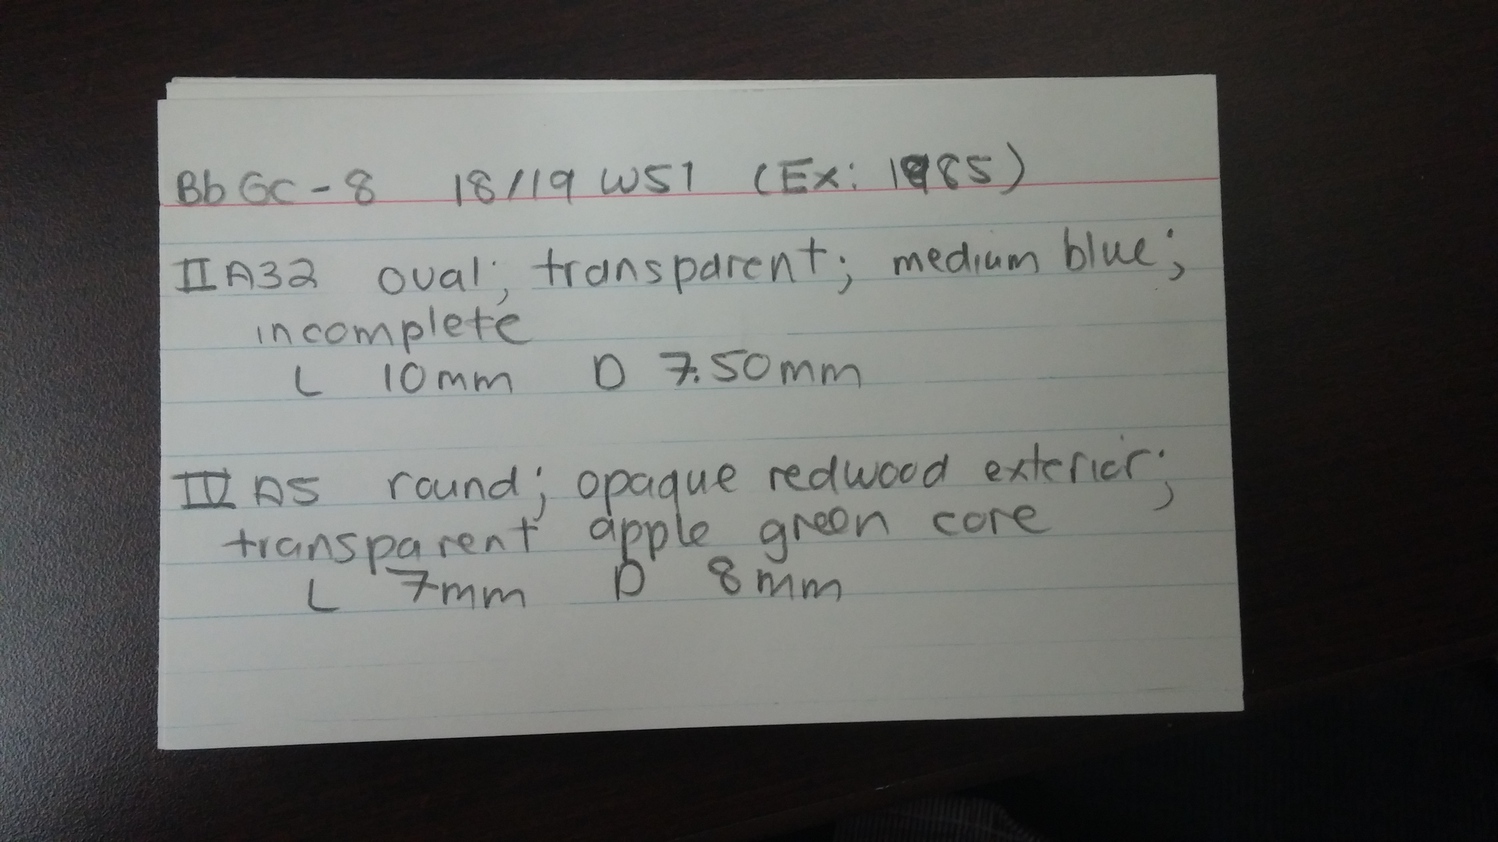 BbGc-8 18/19 W51 (Ex: 1985)
IIA32 oval; transparent; medium blue;
incomplete
L 10mm D 7.50mm
IVA5 round; opaque redwood exterior;
transparent apple green core
L 7mm D 8mm